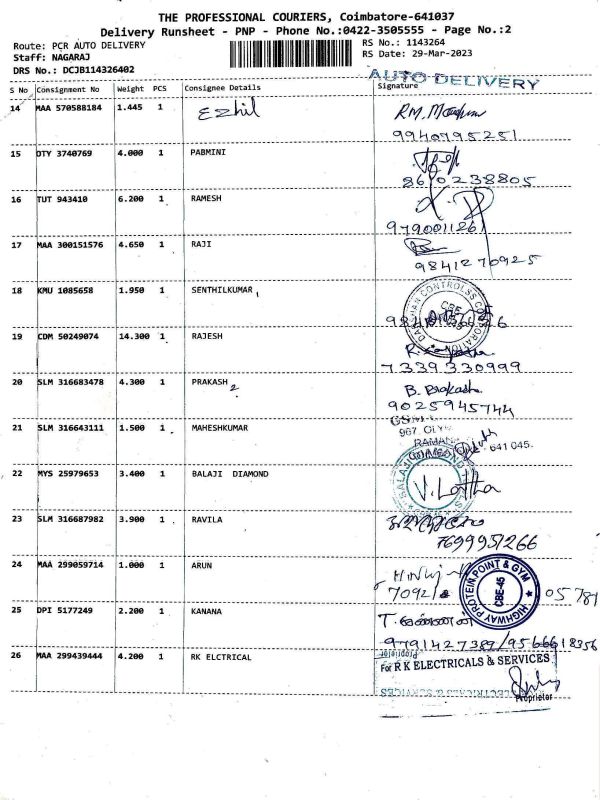 THE PROFESSIONAL COURIERS, Coimbatore-641037
Delivery Runsheet - PNP - Phone No.:0422-3505555 - Page No.:2
Route: PCR AUTO DELIVERY
RS No.: 1143264
Staff: NAGARAJ
RS Date: 29-Mar-2023
DRS No.: DCJB114326402
AUTO DELIVERY
S No Consignment No Weight PCS Consignee Details Signature
14 MAA 570588184 1.445 1 Ezhil
9940795251
15 DTY 3740769 4.000 1 PABMINI
8670238805
16 TUT 943410 6.200 1 RAMESH
9790011261
17 MAA 300151576 4.650 1 RAJI
9841270925
18 KMU 1085658 1.950 1 SENTHILKUMAR 1
CBE
19 CDM 50249074 14.300 1 RAJESH
7339330999
20 SLM 316683478 4.300 1 PRAKASH 2 B. Prakash
9025945744
21 SLM 316643111 1.500 1 MAHESHKUMAR
641 045.
22 MYS 25979653 3.400 1 BALAJI DIAMOND V. Latha
23 SLM 316687982 3.900 1 RAVILA
7699951266
24 MAA 299059714 1.000 1 ARUN
HIGHWAY PROTEIN POINT & GYM
CBE-45
70921 05781
25 DPI 5177249 2.200 1 KANANA
9791427389/9566618356
26 MAA 299439444 4.200 1 RK ELCTRICAL
For R K ELECTRICALS & SERVICES
Proprietor